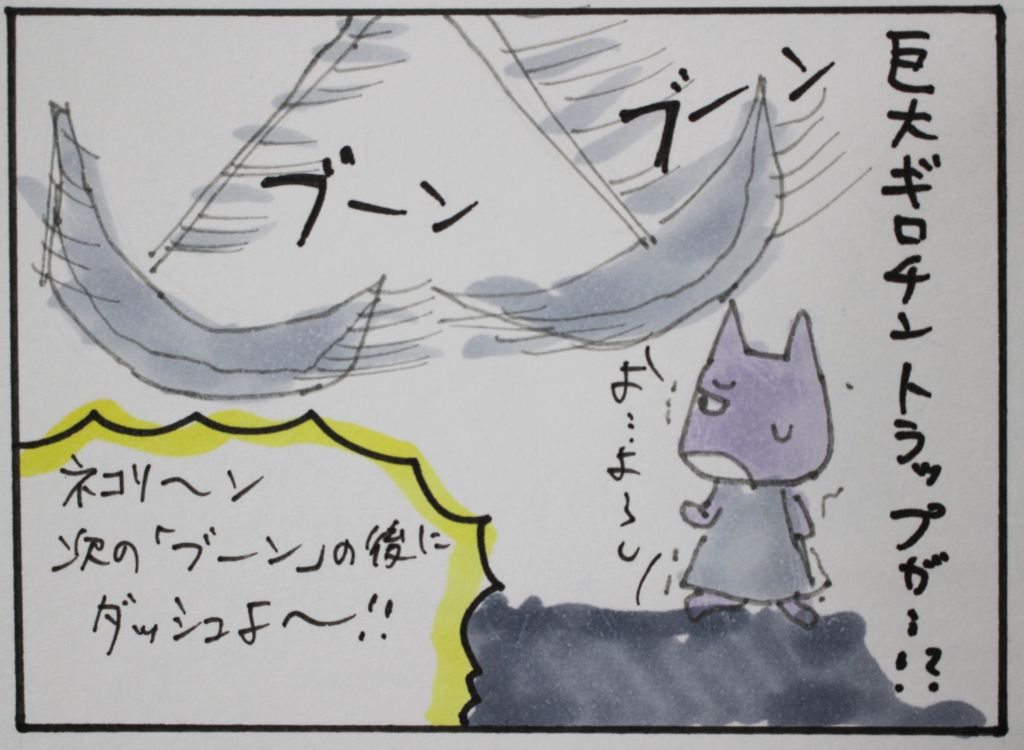 巨大ギロチントラップが…!?
ブーン
ブーン
よ…よ～し
ネコリ～ン
次の「ブーン」の後に
ダッシュよ～!!